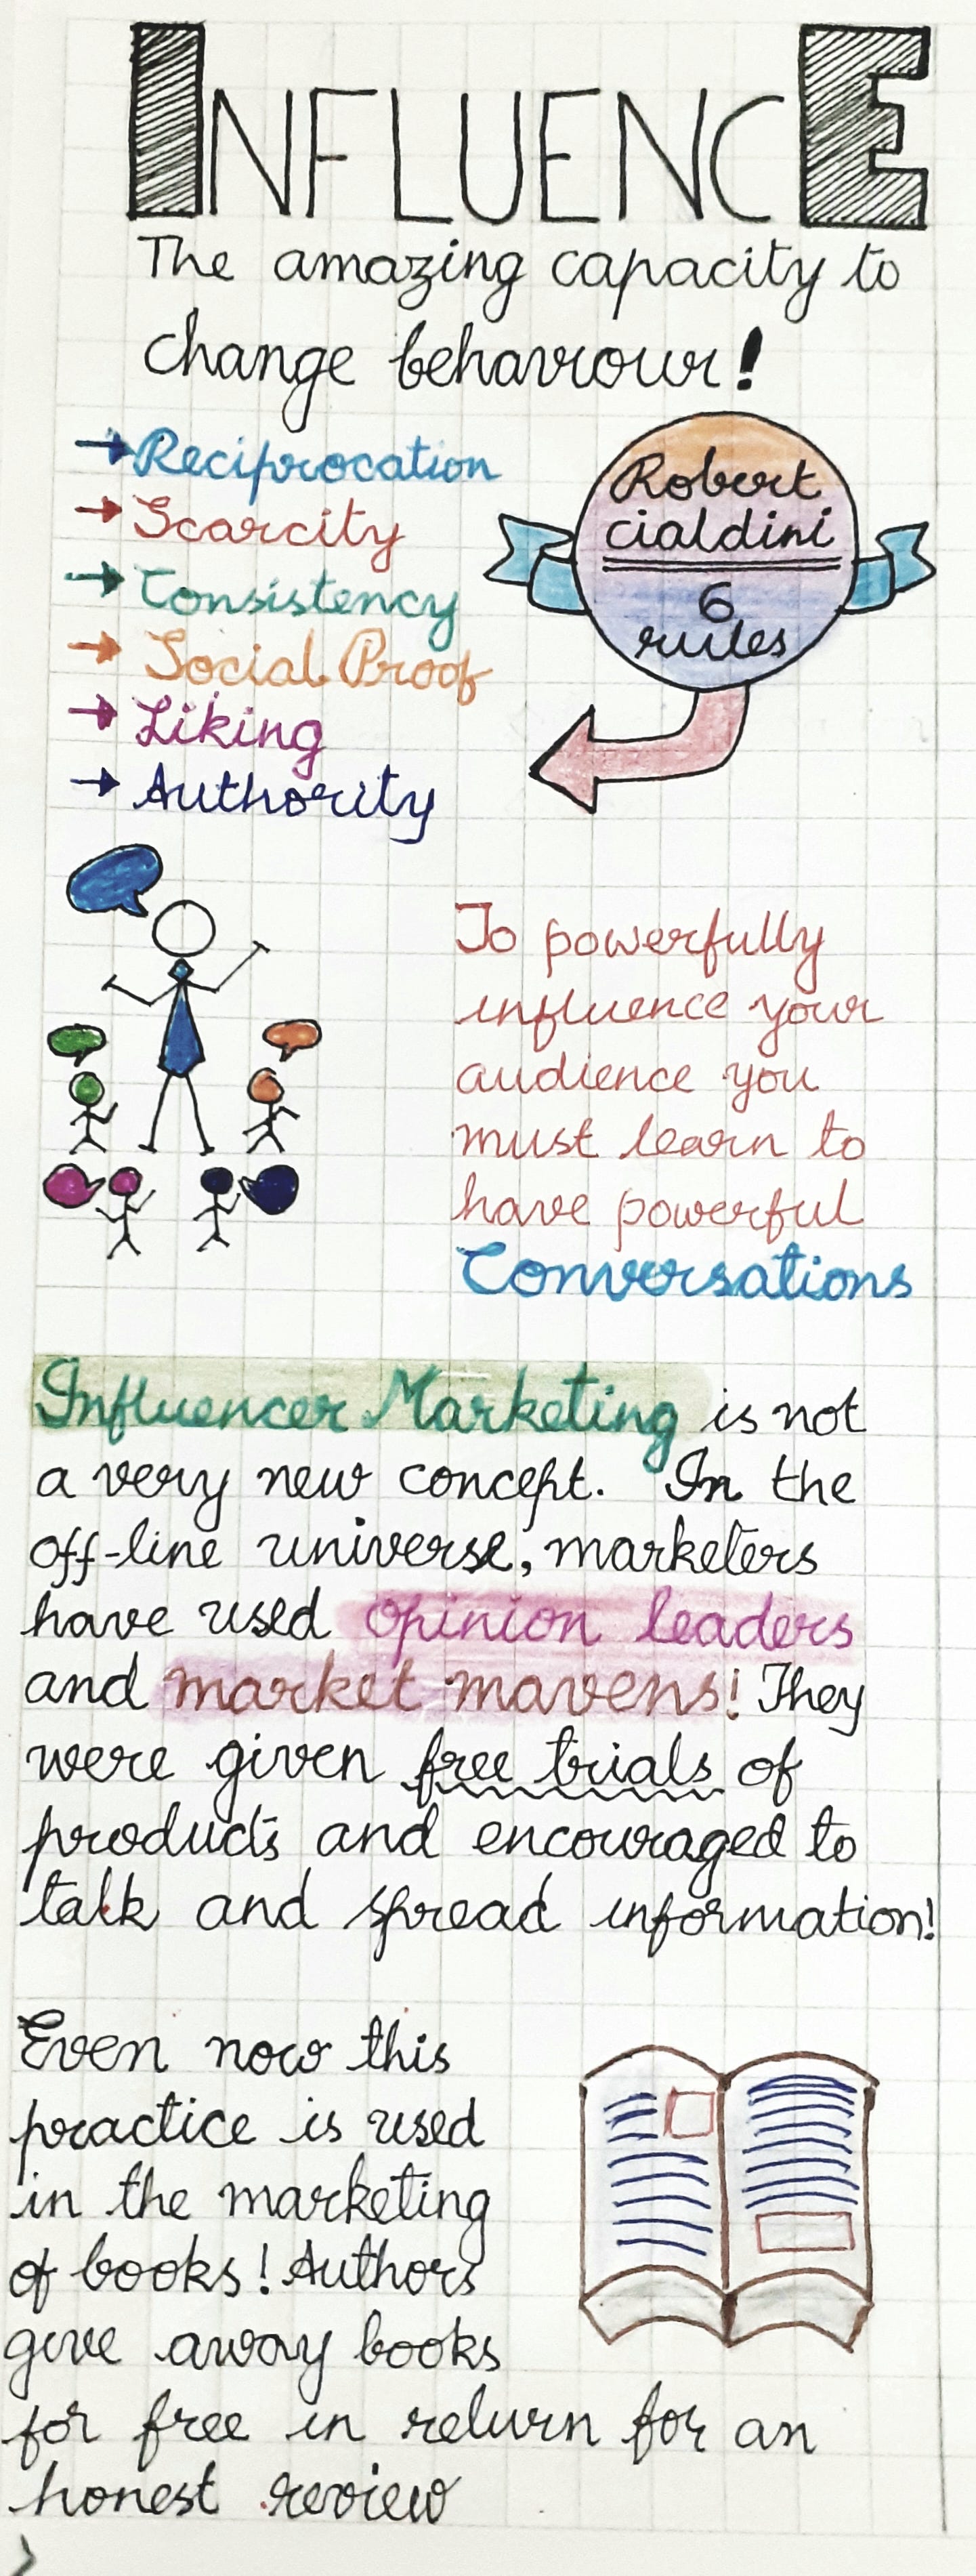 INFLUENCE
The amazing capacity to
change behaviour!
→ Reciprocation
→ Scarcity
→ Consistency
→ Social Proof
→ Liking
→ Authority
Robert
cialdini
6
rules
To powerfully
influence your
audience you
must learn to
have powerful
Conversations
Influencer Marketing is not
a very new concept. In the
off-line universe, marketers
have used opinion leaders
and market mavens! They
were given free trials of
products and encouraged to
talk and spread information!
Even now this
practice is used
in the marketing
of books! Authors
give away books
for free in return for an
honest review